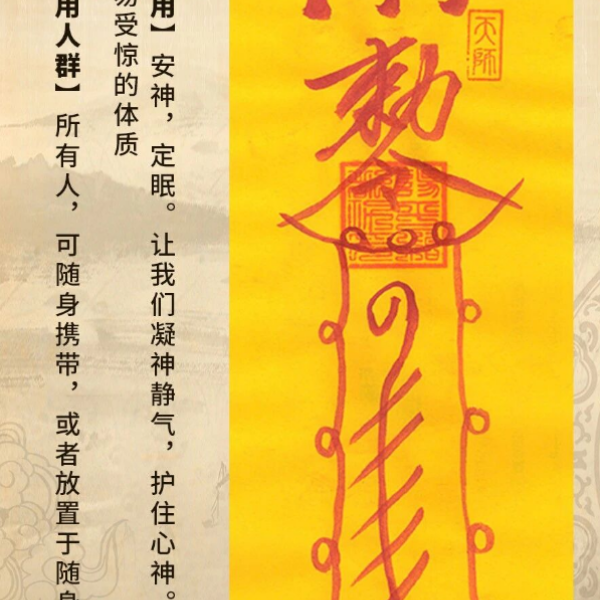 用】安神，定眠。让我们凝神静气，护住心神。
易受惊的体质
用人群】所有人，可随身携带，或者放置于随身
敕令
天师